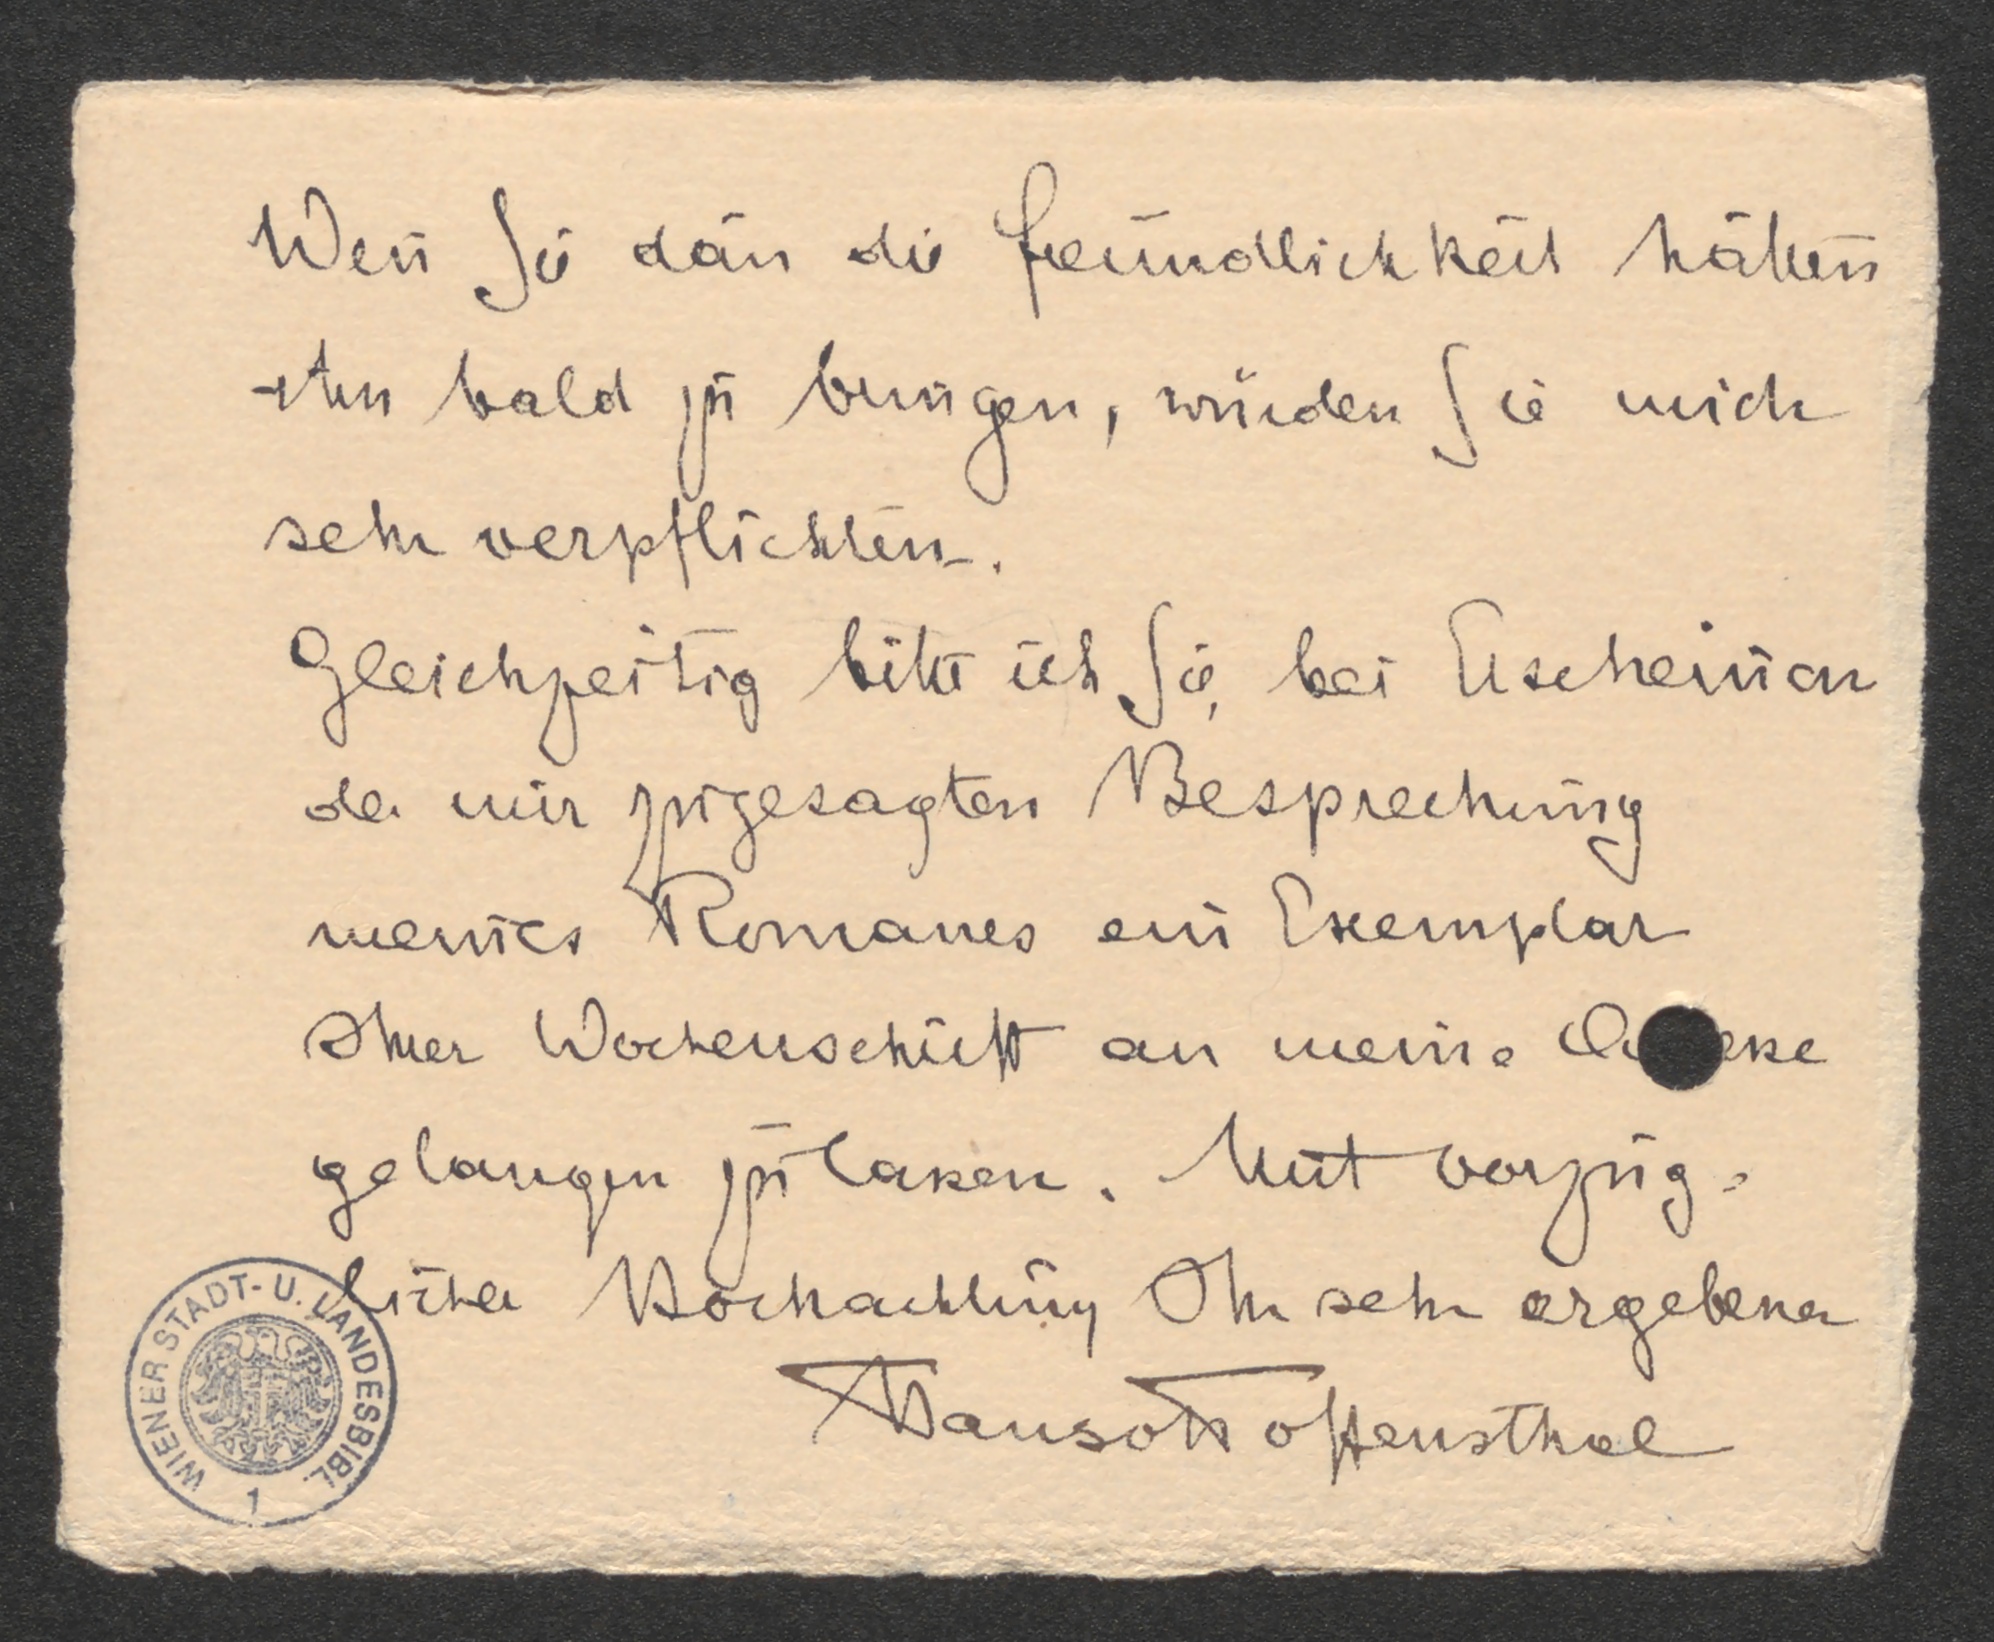 Wenn Sie dann die Freundlichkeit hätten
ihn bald zu bringen, würden Sie mich
sehr verpflichten.
Gleichzeitig bitte ich Sie, bei Erscheinen
der mir zugesagten Besprechung
meines Romanes ein Exemplar
Ihrer Wochenschrift an meine
gelangen zu lassen. Mit vorzüg-
licher Hochachtung Ihr sehr ergebener
Hans v Hoffensthal
WIENER STADT- U. LANDESBIBL.
1